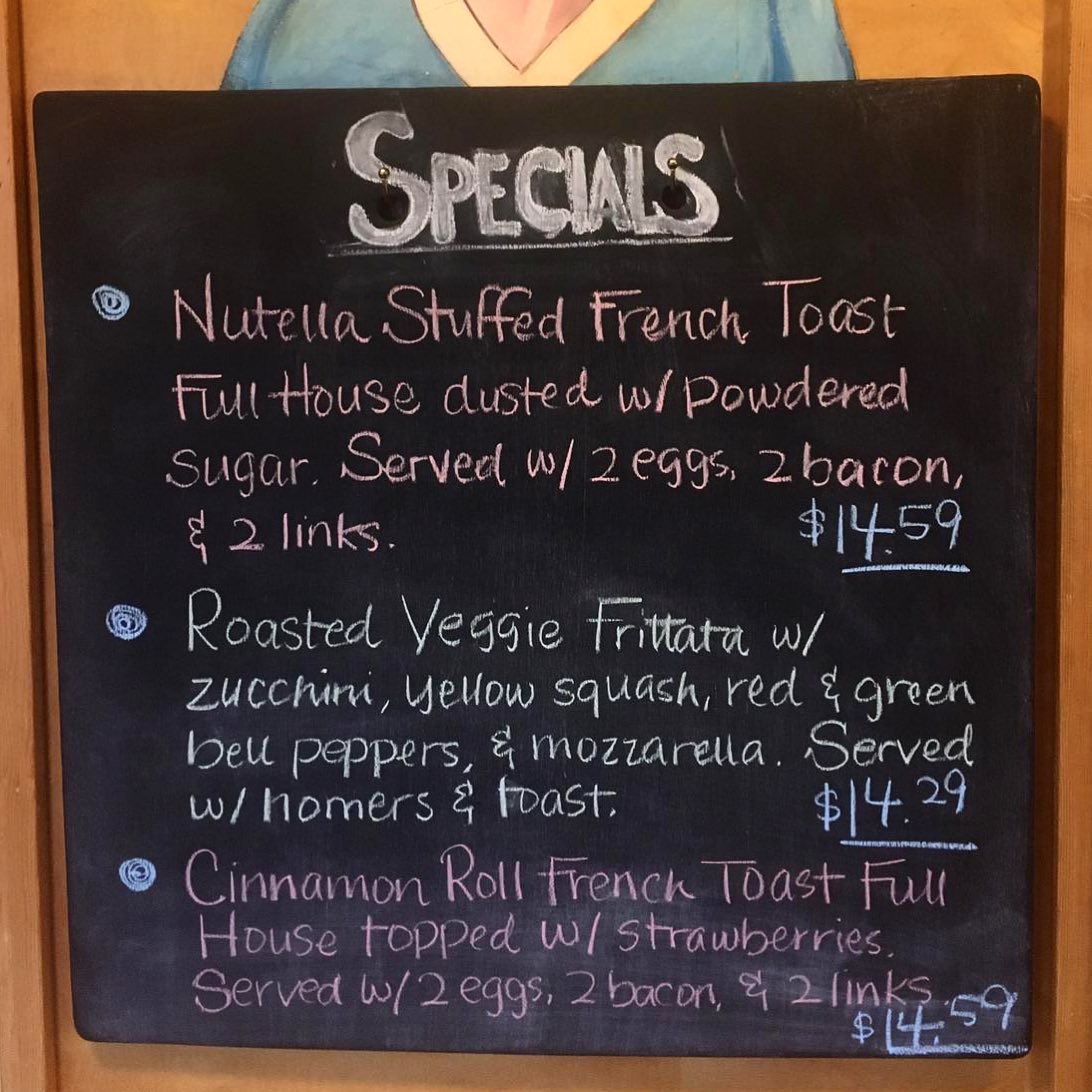 SPECIALS
Nutella Stuffed French Toast
Full House dusted w/ powdered
sugar. Served w/ 2 eggs, 2 bacon,
& 2 links. $14.59
Roasted Veggie Frittata w/
zucchini, yellow squash, red & green
bell peppers, & mozzarella. Served
w/ homers & toast. $14.29
Cinnamon Roll French Toast Full
House topped w/ strawberries.
Served w/ 2 eggs, 2 bacon, & 2 links.
$14.59